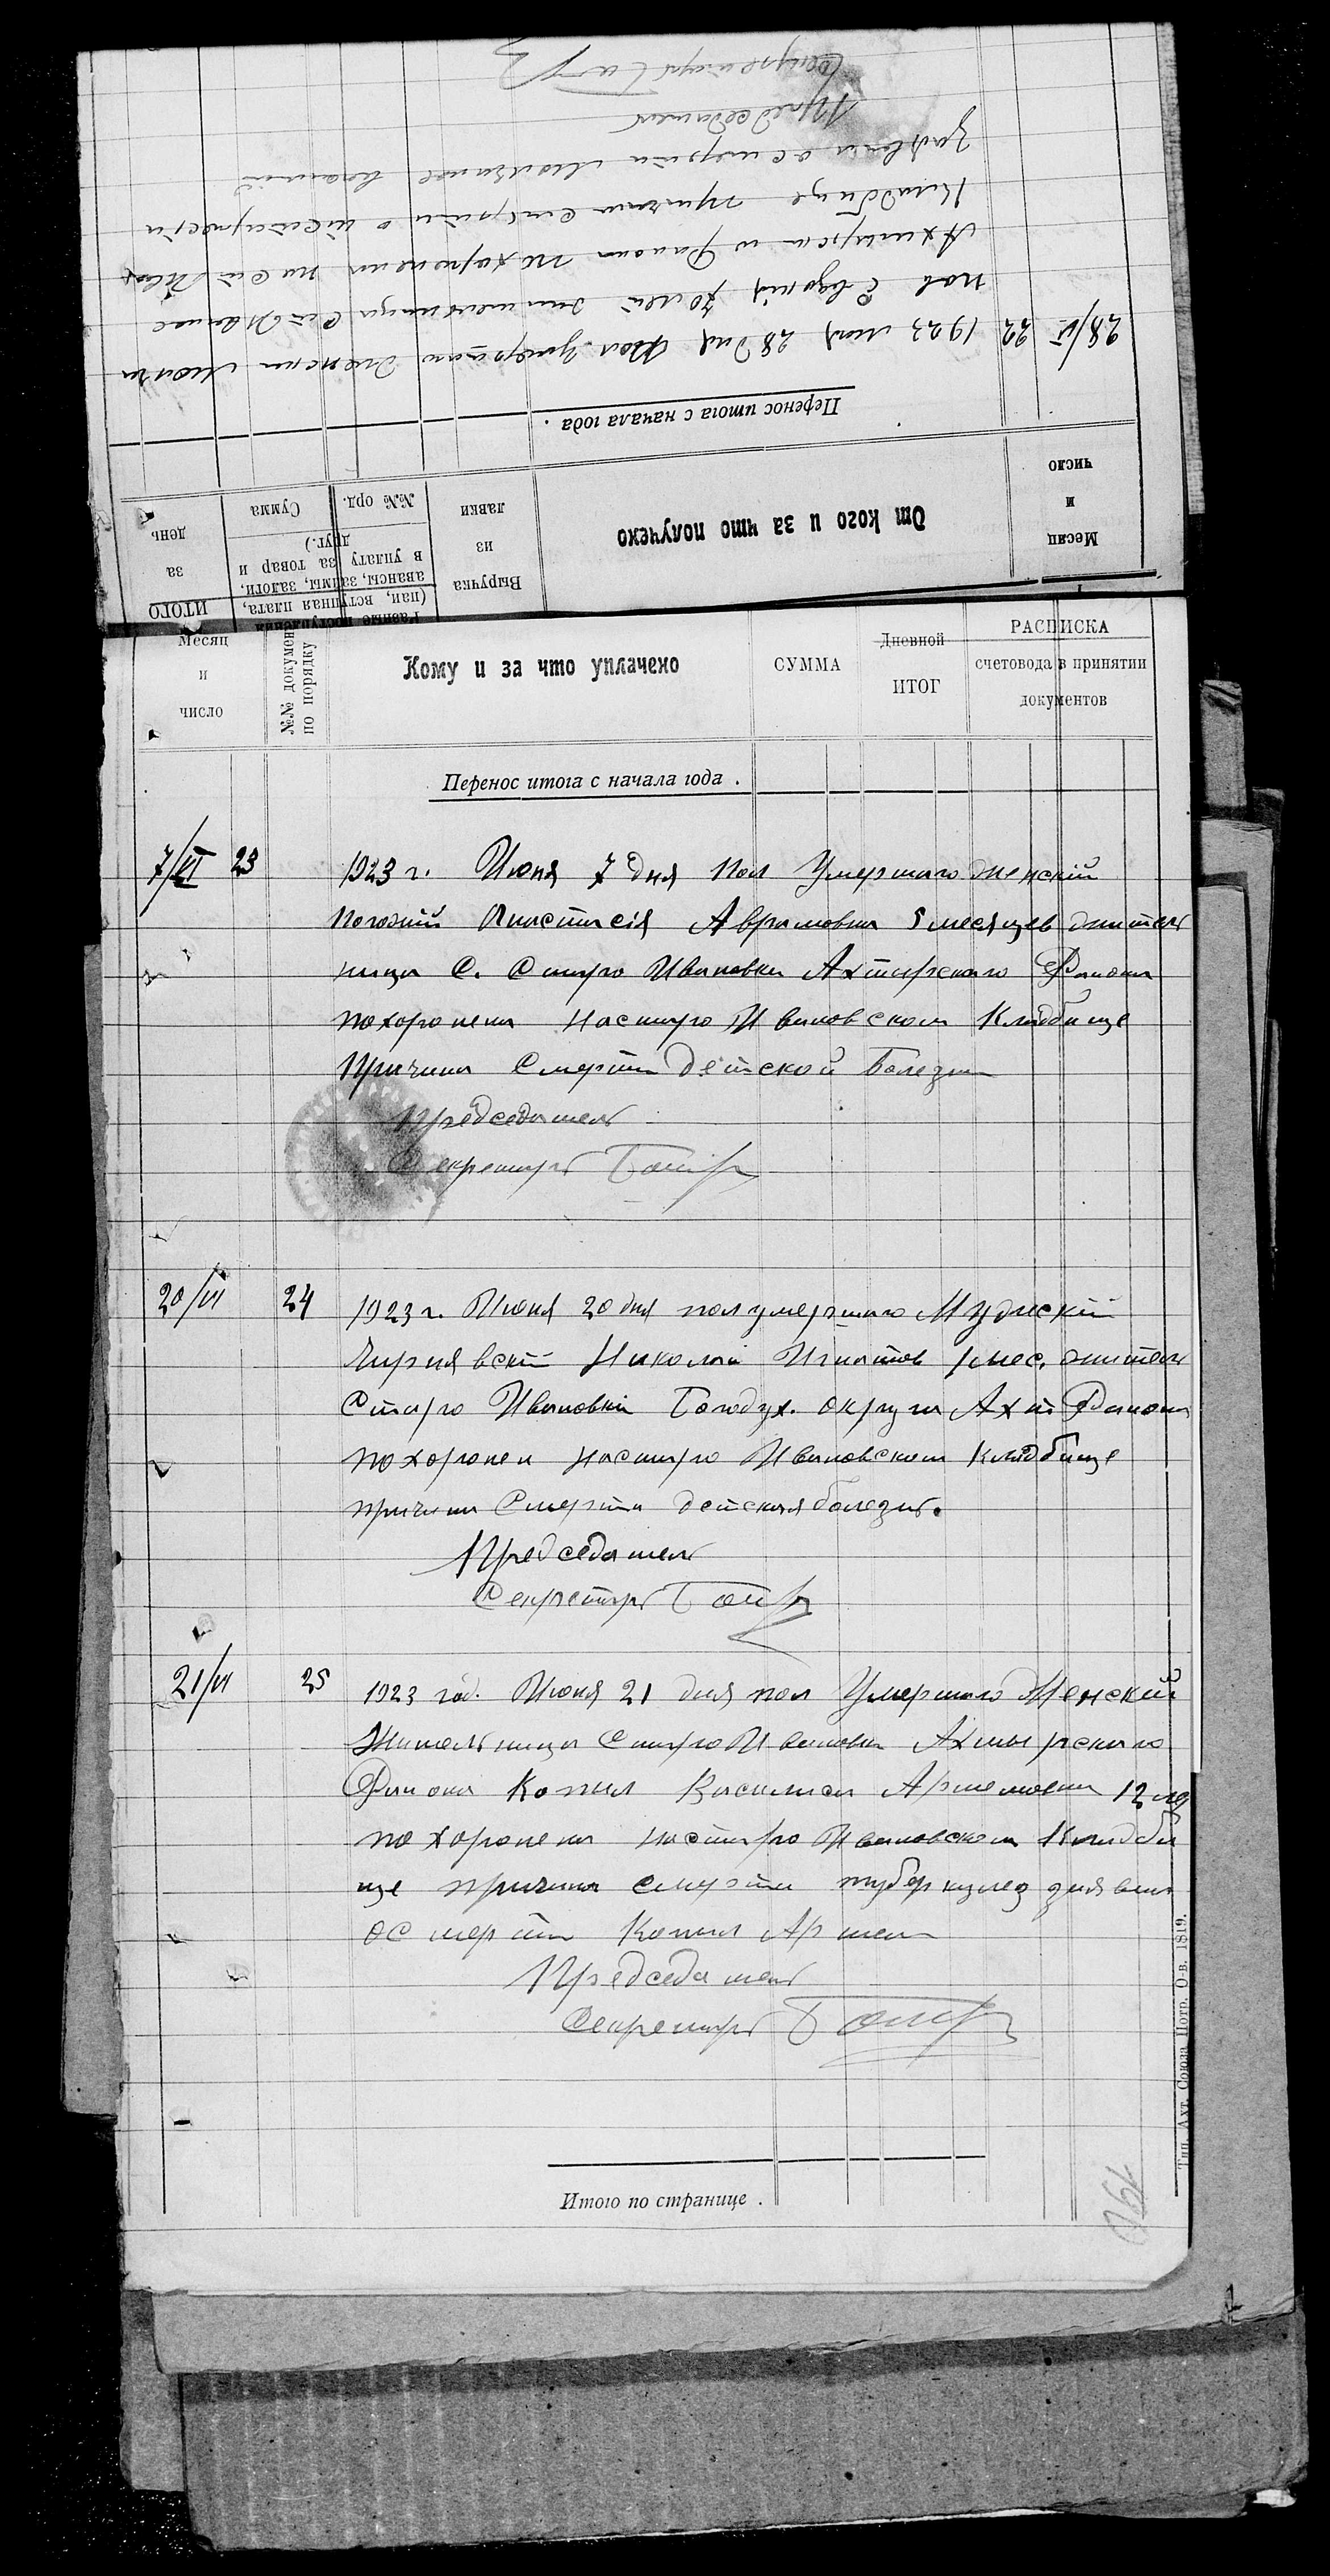 Месяц
и
число
От кого и за что получено
Выручка
из
лавки
Разные поступления
(паи, вступная плата,
авансы, займы, залоги,
в уплату за товар и
друг.)
№№ орд.
Сумма
ИТОГО
за
день
Перенос итога с начала года .
28/VI 22 1923 мая 28 дня Пол Умершаго женски
пов Евдокия 70 лет жительница
Ахтырск района похоронена на
Кладбище причина смерти о
заявила о смерти
Председатель
Секретарь
Месяц
и
число
№№ документ
по порядку
Кому и за что уплачено
СУММА
Дневной
ИТОГ
РАСПИСКА
счетовода в принятии
документов
Перенос итога с начала года .
7/VI 23 1923 г. Июня 7 дня пол Умершаго женскій
Анастасія Аврамовна 5 месяцев житель
ница С. Старо Ивановки Ахтирскаго Района
похоронена настаро Ивановском Кладбище
Причина Смерти Детской Болезни
Председатель
Секретарь
20/VI 24 1923 г. Июня 20 дня пол умершаго Мужскій
Николай Игнатов мес. житель
Старо Ивановки Богодух. округа Ахт Района
похоронен настаро Ивановском Кладбище
причина Смерти детская болезнь.
Председатель
Секретарь
21/VI 25 1923 год. Июня 21 дня пол Умершаго Женскій
Жительница Старо Ивановки Ахтырскаго
Района Копил Василиса Артемовна 12 ле
похоронена настаро Ивановском Кладби
ще причина смерти туберкулез заявил
осмерти Копил Артем
Председатель
Секретарь
Итого по странице .
Тип. Ахт. Союза Потр. О-в. 1819.
190